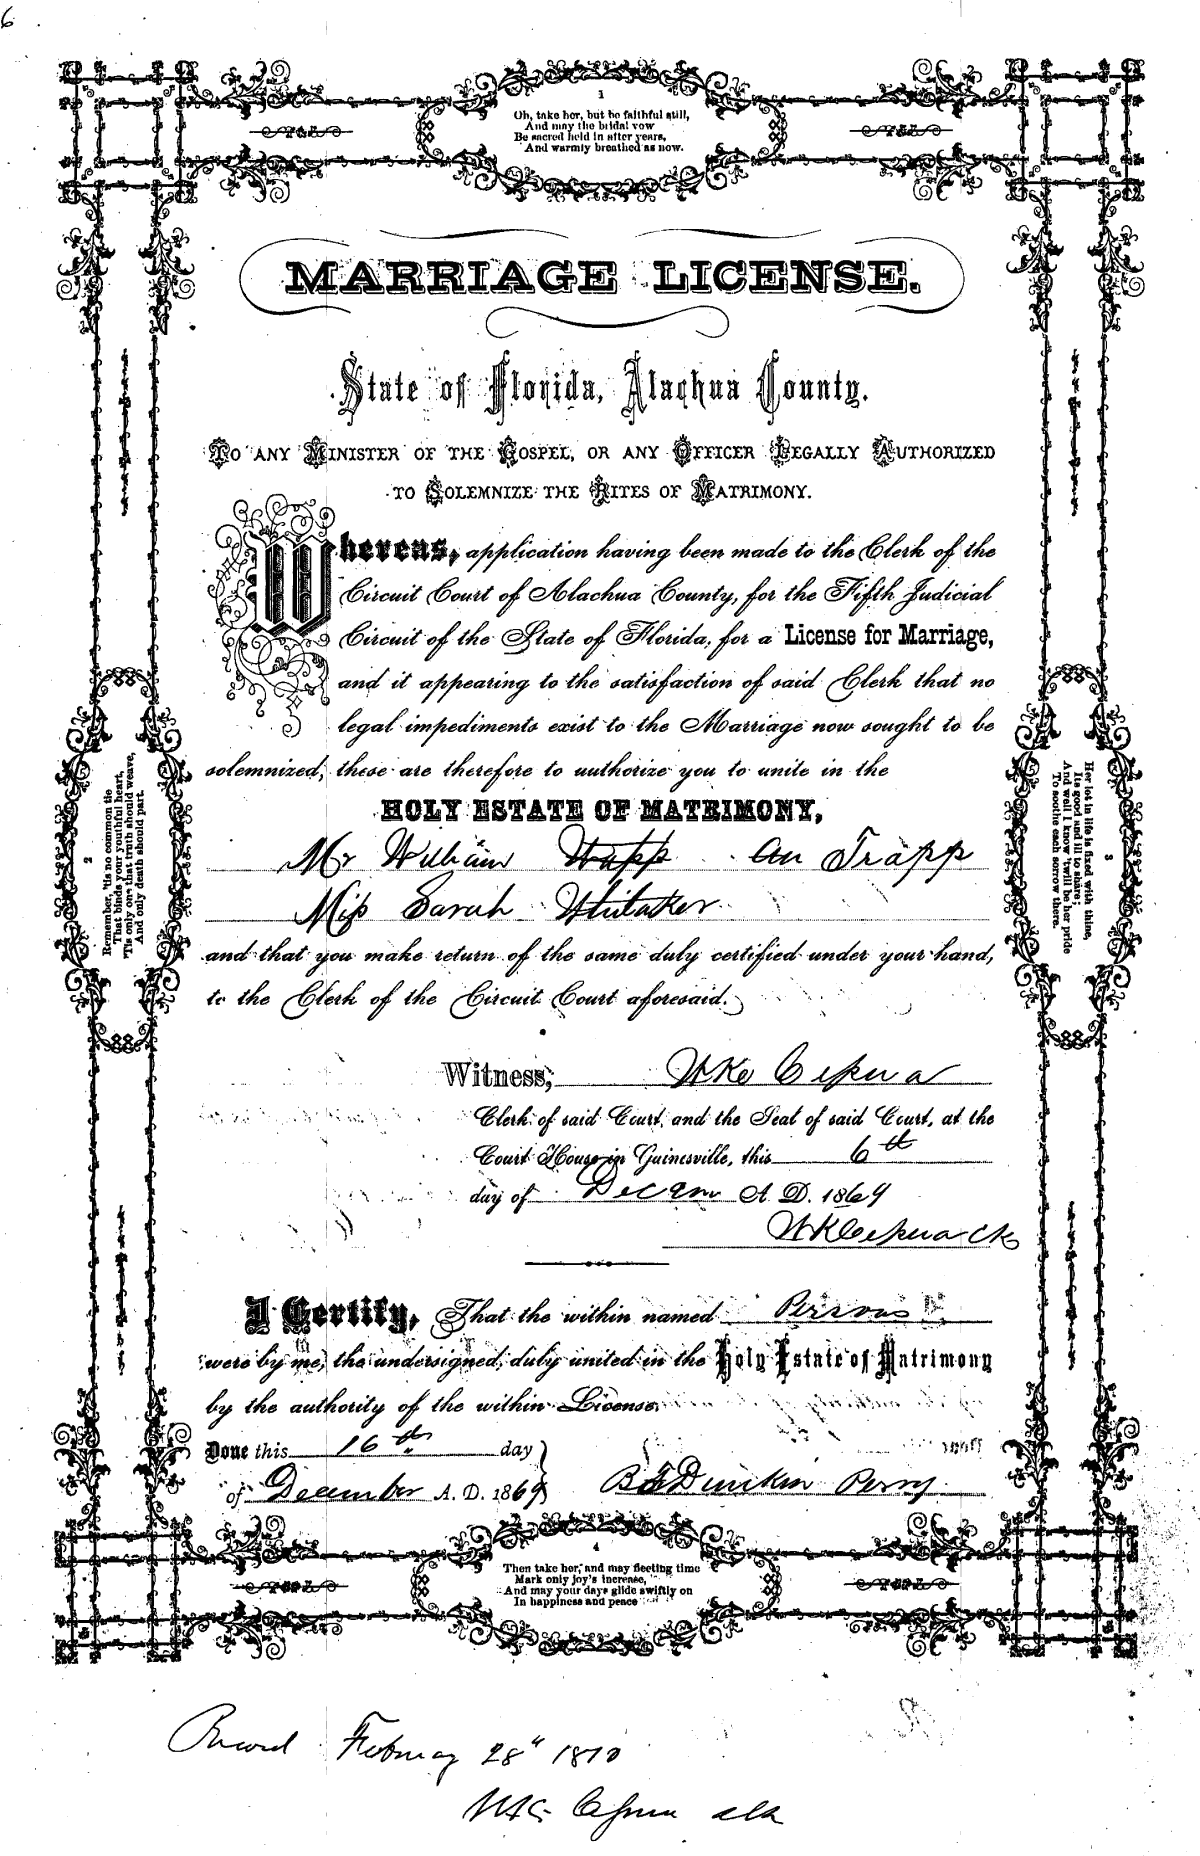 6
1
Oh, take her, but be faithful still,
And may the bridal vow
Be sacred held in after years,
And warmly breathed as now.
MARRIAGE LICENSE.
State of Florida, Alachua County.
TO ANY MINISTER OF THE GOSPEL, OR ANY OFFICER LEGALLY AUTHORIZED
TO SOLEMNIZE THE RITES OF MATRIMONY.
Whereas, application having been made to the Clerk of the
Circuit Court of Alachua County, for the Fifth Judicial
Circuit of the State of Florida, for a License for Marriage,
and it appearing to the satisfaction of said Clerk that no
legal impediments exist to the Marriage now sought to be
solemnized, these are therefore to authorize you to unite in the
HOLY ESTATE OF MATRIMONY,
Mr William Trapp an Trapp
Miss Sarah Whitaker
and that you make return of the same duly certified under your hand,
to the Clerk of the Circuit Court aforesaid.
2
Remember, 'tis no common tie
That binds your youthful heart,
'Tis only one that truth should weave,
And only death should part.
3
Her lot in life is fixed with thine,
Its good and ill to share;
And well I know 'twill be her pride
To soothe each sorrow there.
Witness, Cepua
Clerk of said Court, and the Seal of said Court, at the
Court House in Gainesville, this 6th
day of Decem A. D. 1869
WK Cepua Clk
I Certify, That the within named Persons
were by me, the undersigned, duly united in the Holy Estate of Matrimony
by the authority of the within License.
Done this 16th day
of December A. D. 1869 Dunkin Perry
4
Then take her, and may fleeting time
Mark only joy's increase,
And may your days glide swiftly on
In happiness and peace
Record February 28" 1870
Cepua clk